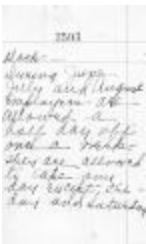 Mack
During June
July and August
Employees are
allowed a
half day off
once a week
They are allowed
to take any
day except
day and Saturday